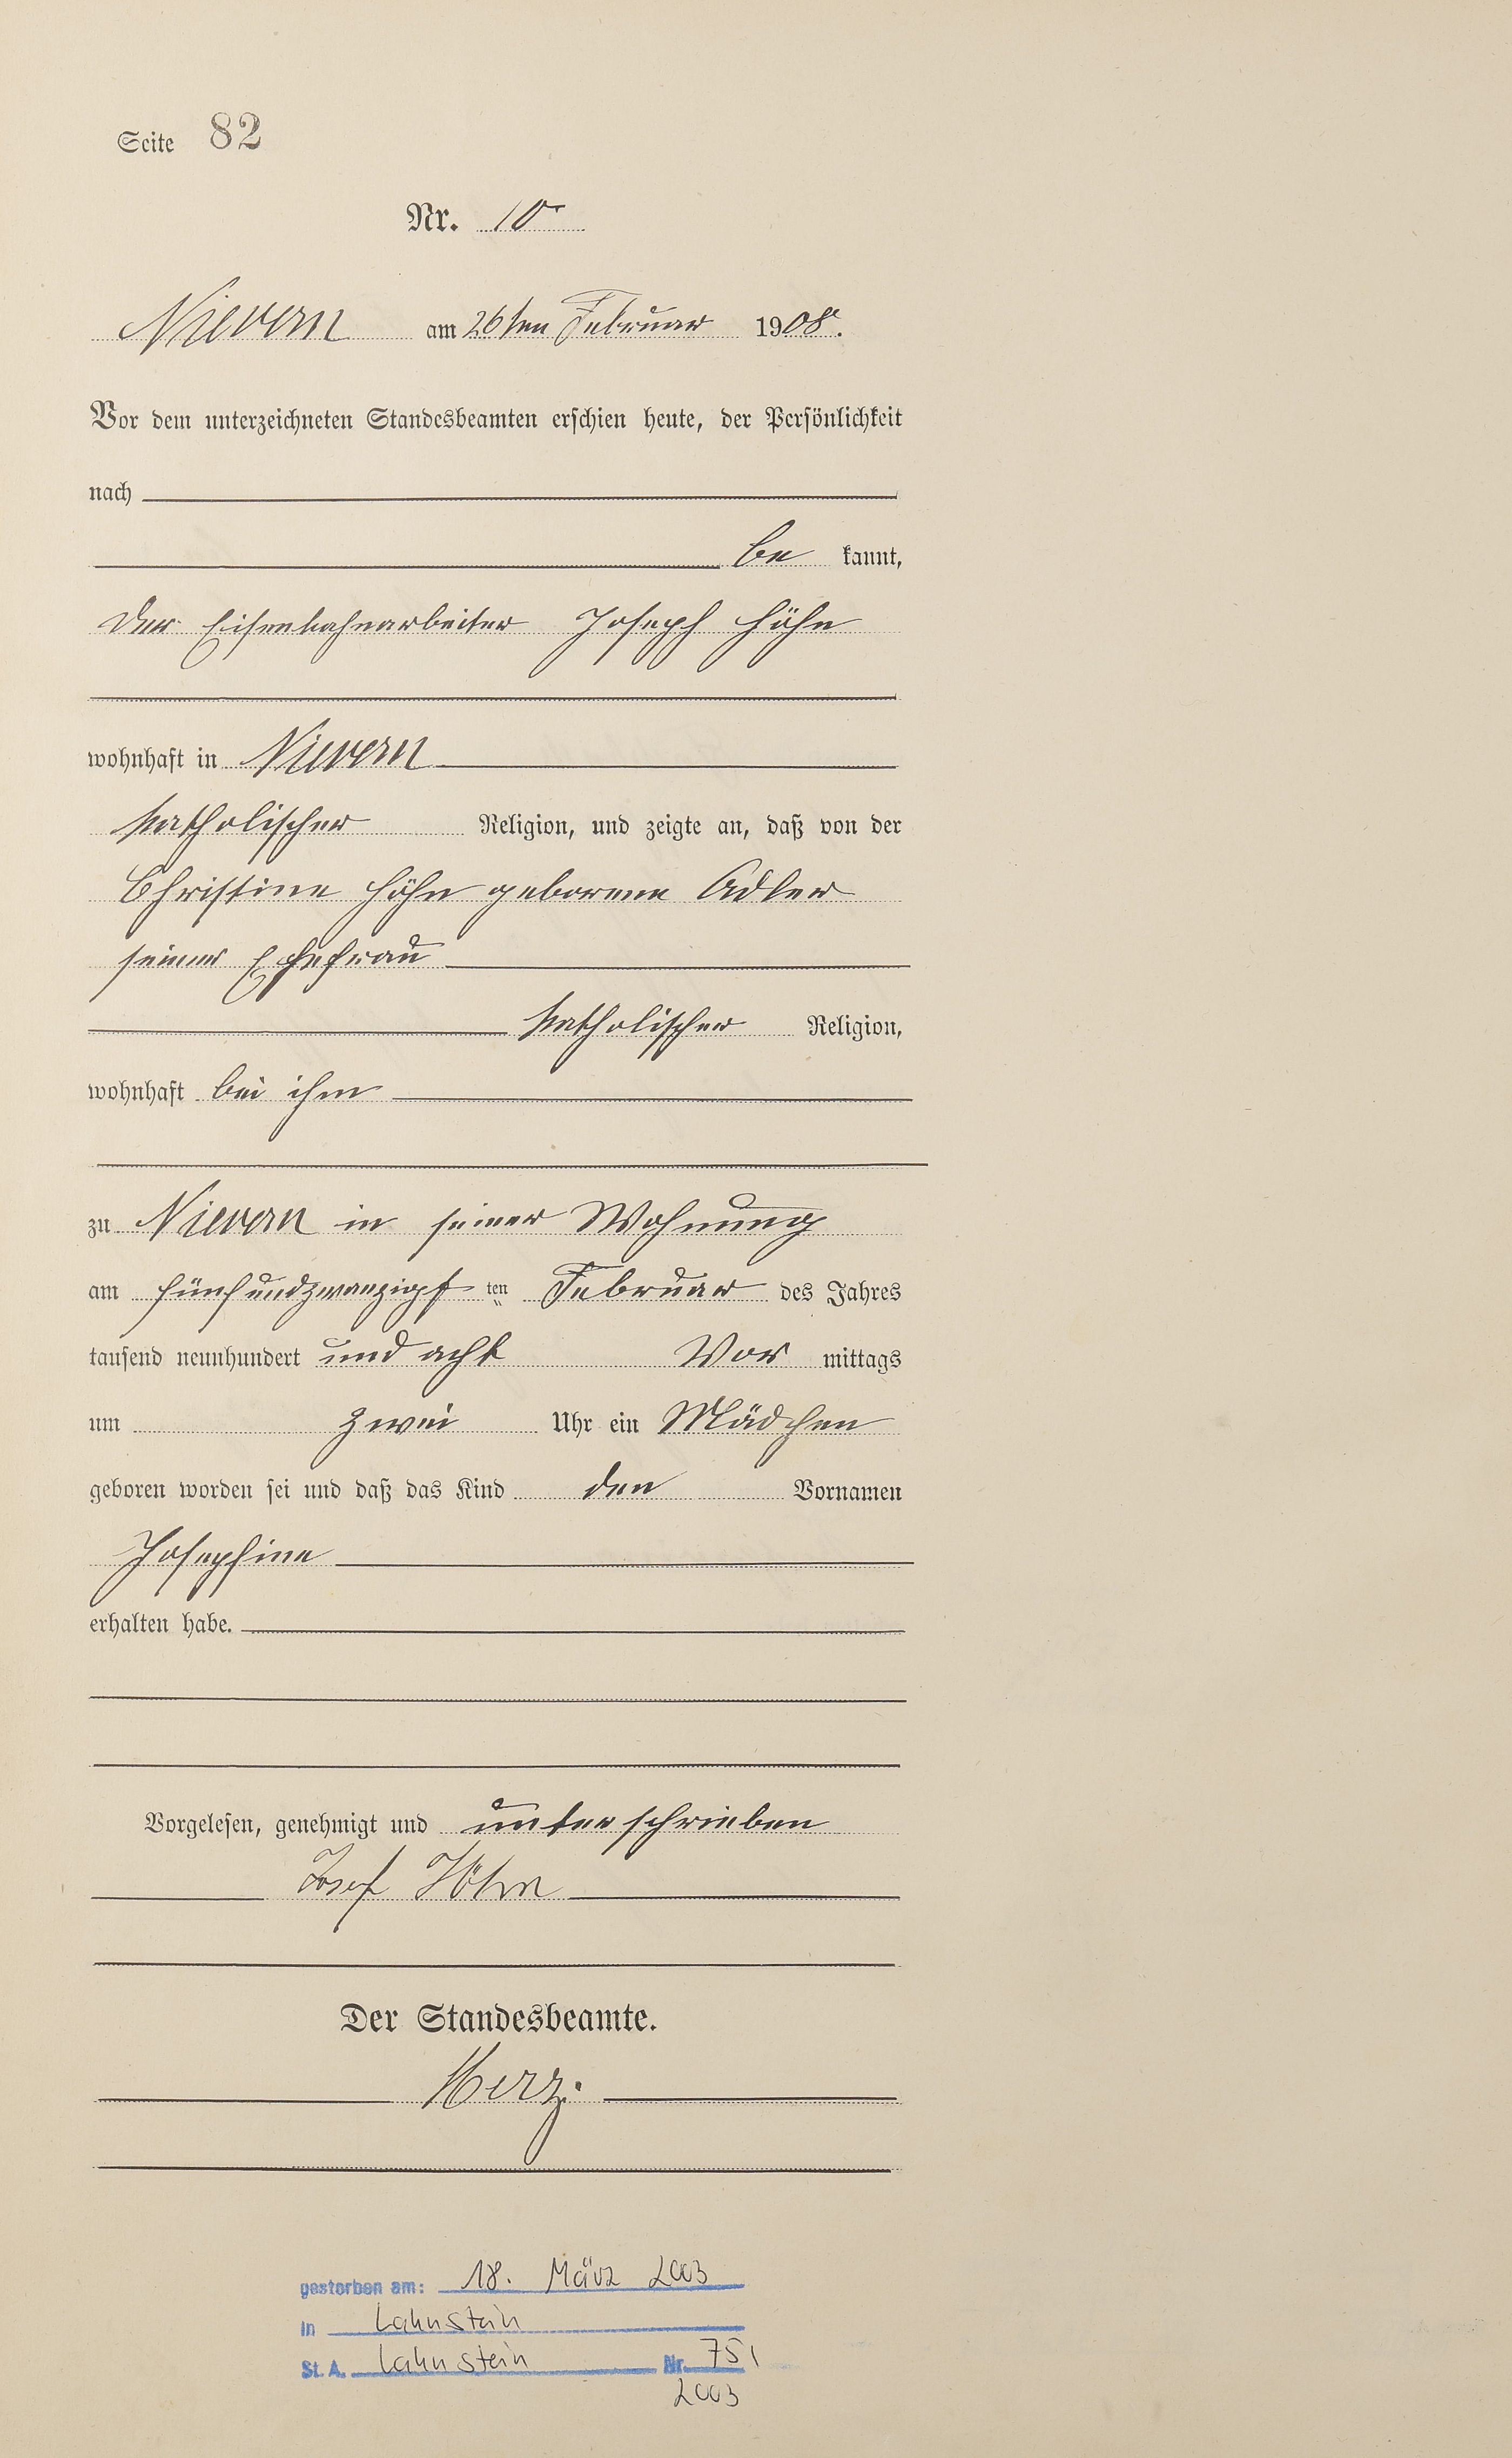 Seite 82
Nr. 10
Nievern am 26ten Februar 1908.
Vor dem unterzeichneten Standesbeamten erschien heute, der Persönlichkeit
nach
be kannt,
der Eisenbahnarbeiter Joseph Höhn
wohnhaft in Nievern
katholischer Religion, und zeigte an, daß von der
Christine Höhn geborene Adler
seiner Ehefrau
katholischer Religion,
wohnhaft bei ihm
zu Nievern in seiner Wohnung
am fünfundzwanzigs ten Februar des Jahres
tausend neunhundert und acht Vor mittags
um zwei Uhr ein Mädchen
geboren worden sei und daß das Kind den Vornamen
Josephine
erhalten habe.
Vorgelesen, genehmigt und unterschrieben
Josef Höhn
Der Standesbeamte.
Herz.
gestorben am: 18. März 2003
in Lahnstein
St. A. Lahnstein Nr. 75/
2003